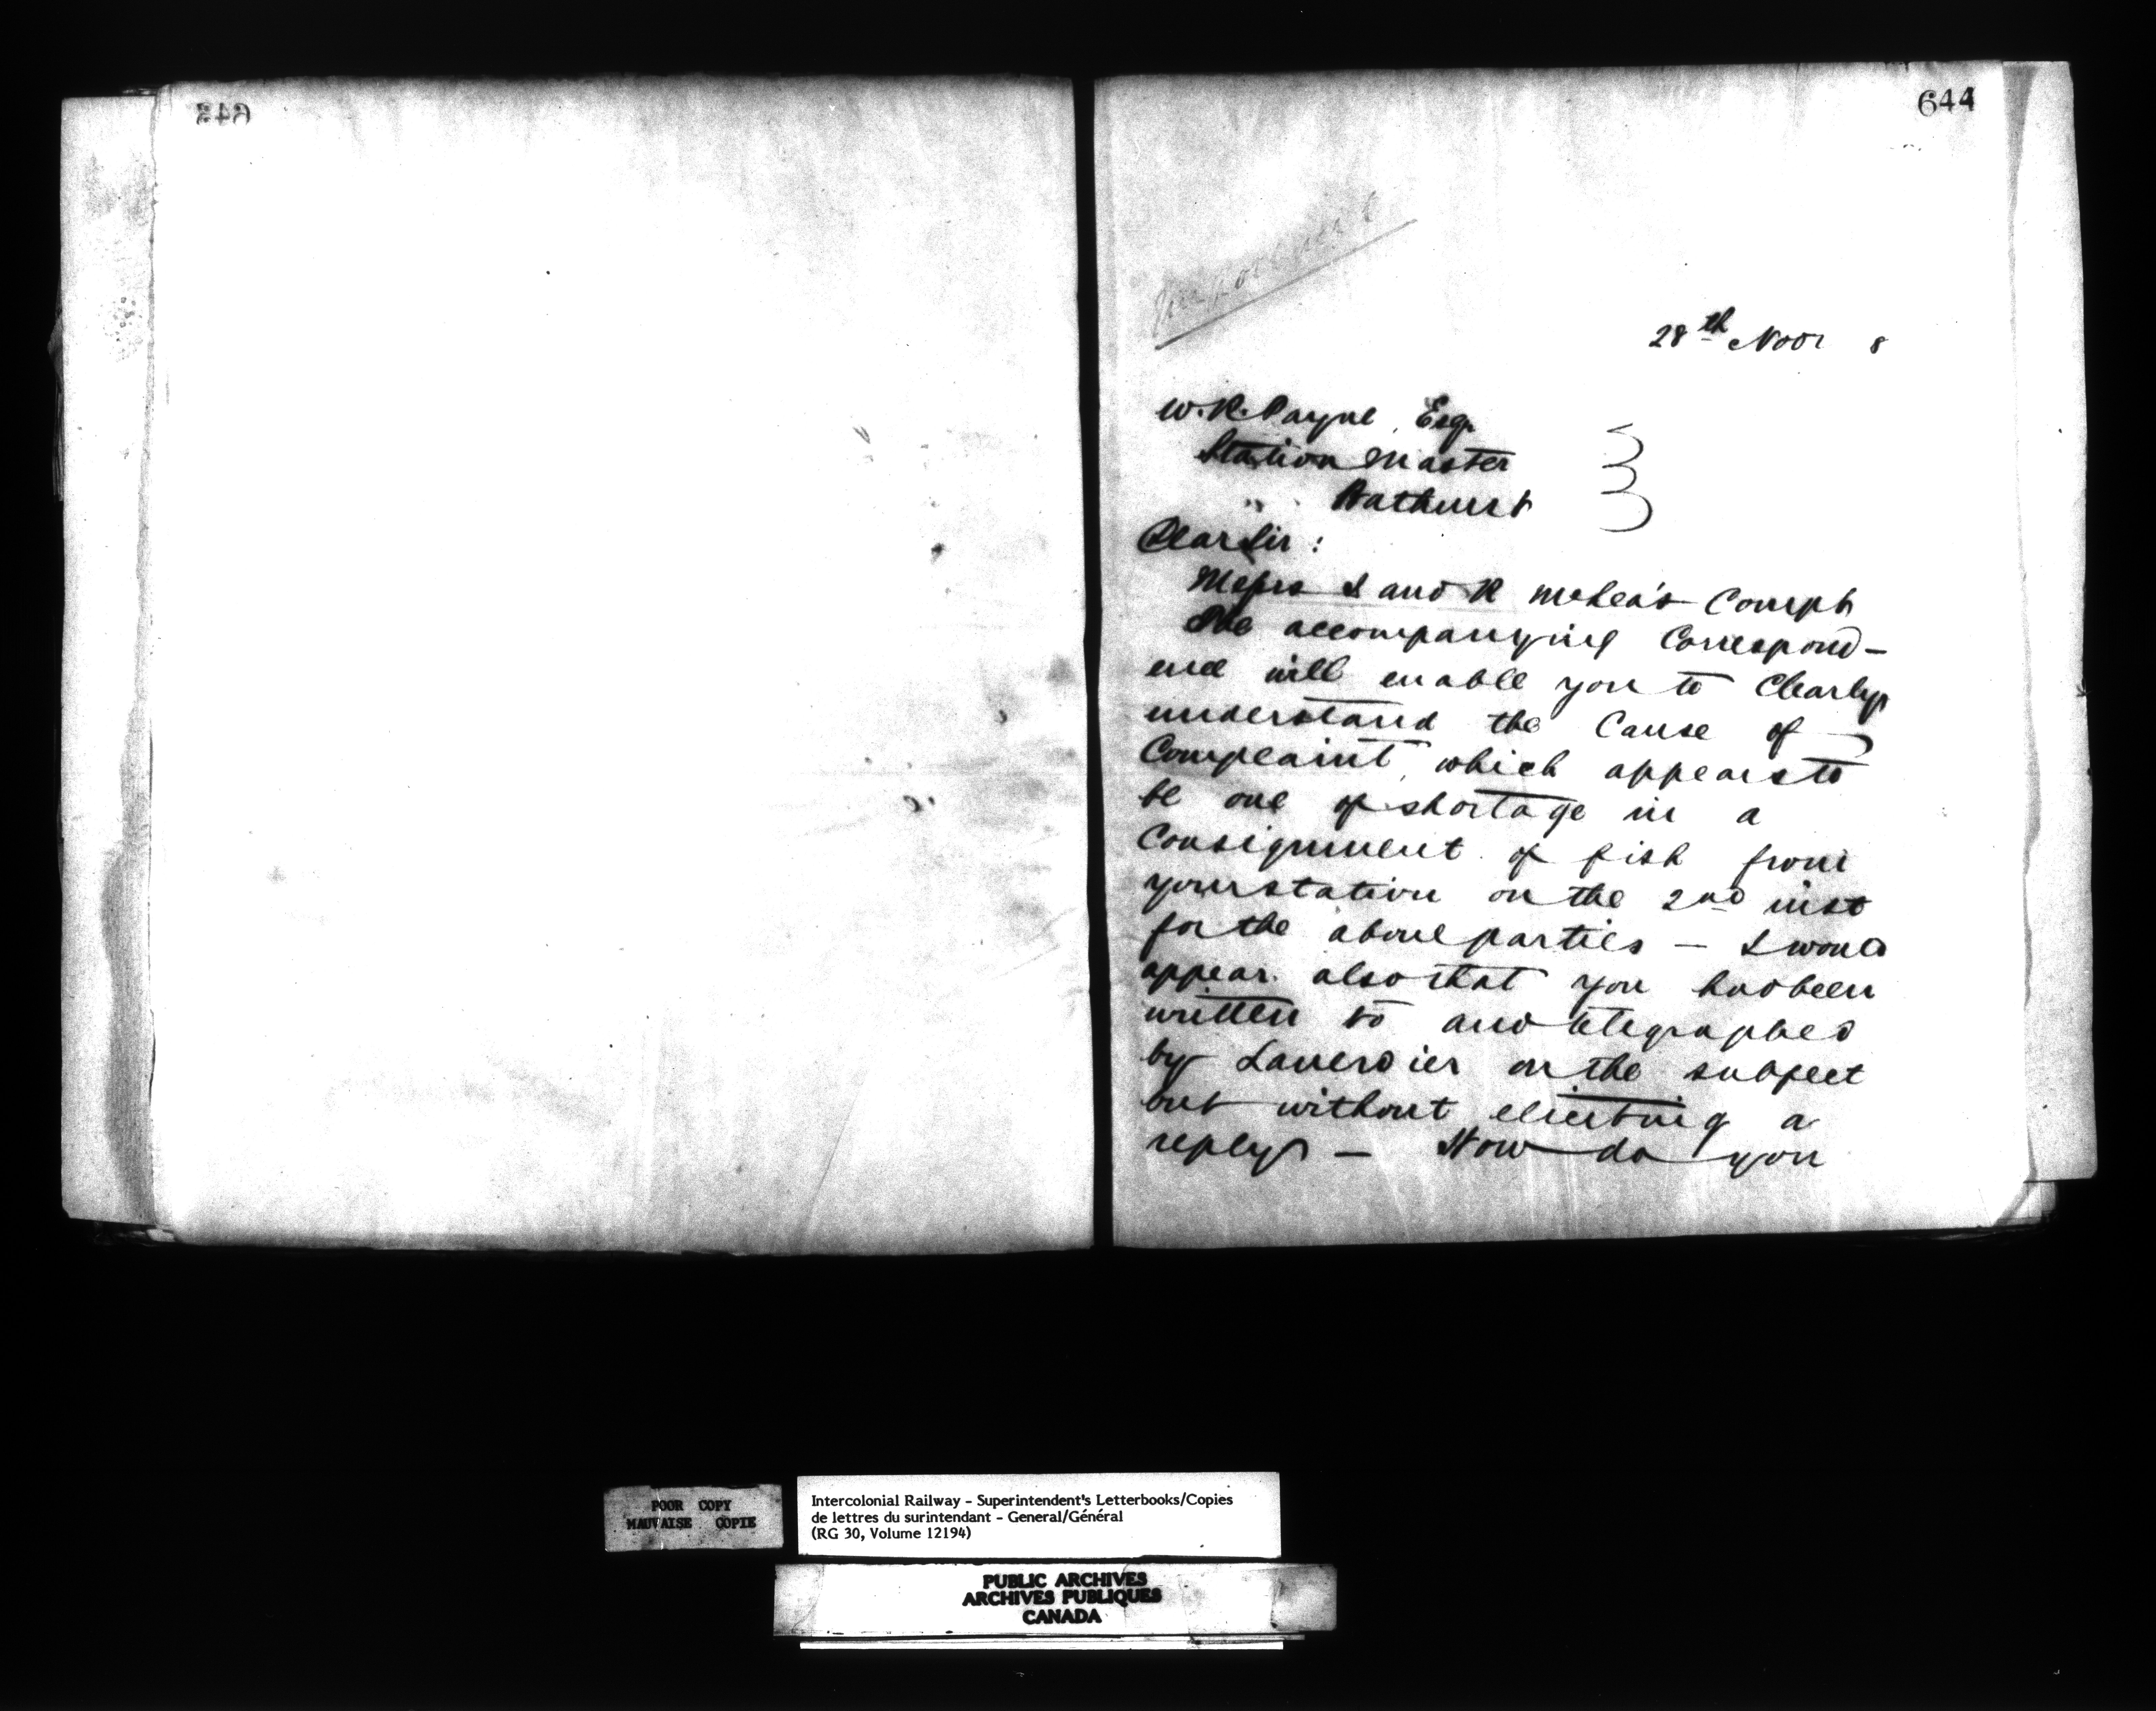 643
644
28th Novr 8
W. R. Payne, Esq.
Station Master
" Bathurst
Dear Sir :
Messrs J and R McLea's Complt
The accompanying Correspond-
ence will enable you to Clearly
understand the Cause of
Complaint, which appears to
be one of shortage in a
Consignment of fish from
your station on the 2nd inst
for the above parties — I would
appear also that you had been
written to and telegraphed
by Laverdier on the subject
but without eliciting a
reply — How do you
POOR COPY
MAUVAISE COPIE
Intercolonial Railway - Superintendent's Letterbooks/Copies
de lettres du surintendant - General/Général
(RG 30, Volume 12194)
PUBLIC ARCHIVES
ARCHIVES PUBLIQUES
CANADA